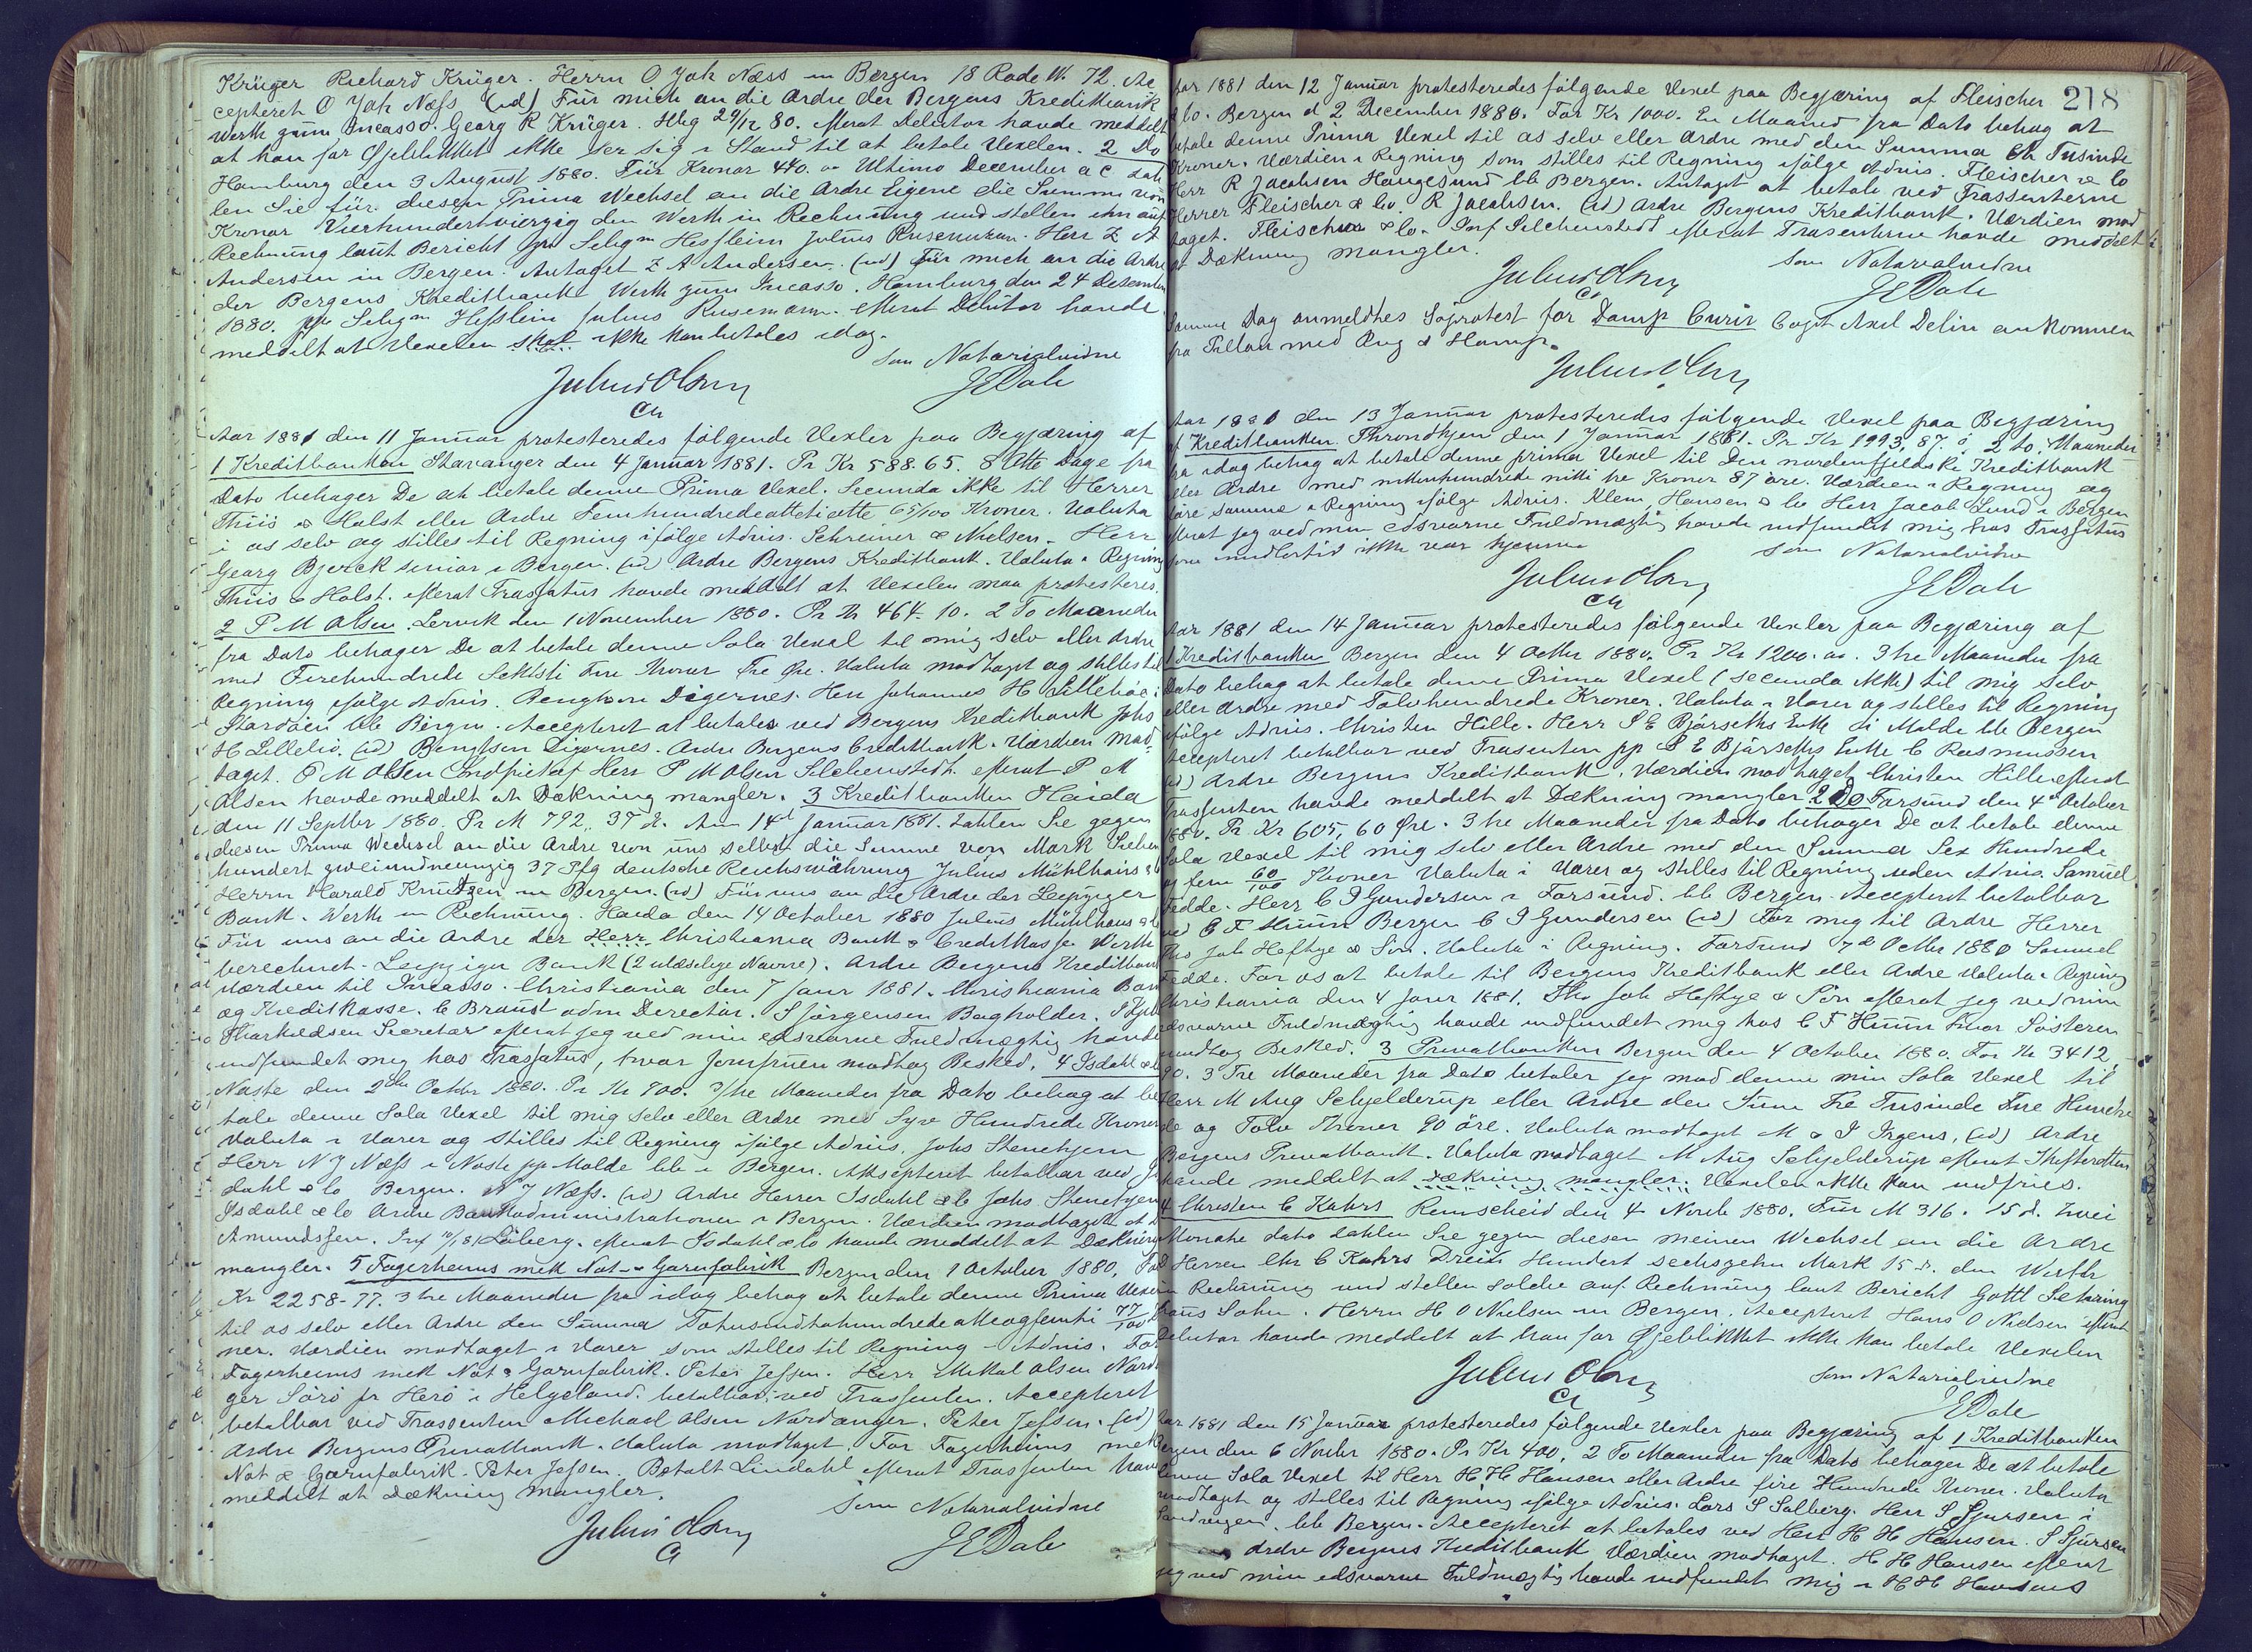 Krüger Richard Krüger. Herrn O Joh Næss in Bergen 18 Rode N. 72. Ac
cepteret O Joh Næss (id) Für mich an die Ordre der Bergens Kreditbank
Werth zum Incasso. Georg R Krüger. Hbg 29/12 80. efterat Debitor havde meddelt
at han for Øjeblikket ikke ser sig i Stand til at betale Vexelen. 2 Do
Hamburg den 3 August 1880. Für Kronor 440. Ultimo December a c zah
len Sie für diesen Prima Wechsel an die Ordre Eigene die Summe von
Kronor Vierhundertvierzig den Werth in Rechnung und stellen ihn auf
Rechnung laut Bericht Seligm Hesslein Julius Herr Z A
Andersen in Bergen. Antaget Z A Andersen. (id) Für mich an die Ordre
der Bergens Kreditbank Werth zum Incasso. Hamburg den 24 Dezember
1880. Seligm Hesslein Julius efterat Debitor havde
meddelt at Vexelen skal ikke kan betales idag.
Som Notarialvidne
Julius Olsen JEDahl
Aar 1881 den 11 Januar protesteredes følgende Vexler paa Begjæring af
1 Kreditbanken Stavanger den 4 Januar 1881. Pr Kr 588.65. 8 Otte Dage fra
Dato behager De at betale denne Prima Vexel. Secunda ikke til Herrer
Thiis & Holst eller Ordre Femhundredeottetiotte 65/100 Kroner. Valuta
i os selv og stilles til Regning ifølge Advis. Schreiner & Nielsen. Herr
Georg Bjerck senior i Bergen. (id) Ordre Bergens Kreditbank. Valuta i Regning
Thiis & Holst. efterat Trassatus havde meddelt at Vexelen maa protesteres.
2 P M Olsen. Lervik den 1 November 1880. Pr Kr 464.10. 2 To Maaneder
fra Dato behager De at betale denne Sola Vexel til mig selv eller Ordre
med Firehundrede Sekstifire Kroner Øre. Valuta modtaget og stilles til
Regning ifølge Advis. Digernes. Herr Johannes H Lillebøe i
Bergen. Accepteret at betales ved Bergens Kreditbank Johs
H Lillebø. (id) Bengtson Digernes. Ordre Bergens Creditbank. Værdien mod
taget. P M Olsen Indfriet af Herr P M Olsen Silchenstedt. efterat P M
Olsen havde meddelt at Dækning mangler. 3 Kreditbanken Haida
den 11 Septbr 1880. Pr M 792. 37 d. Am 14t Januar 1881. zahlen Sie gegen
diesen Prima Wechsel an die Ordre von uns selbst die Summe von Mark Sieben
hundert zweiundneunzig 37 Pfg deutsche Reichswährung Julius Mühlhaus & Co
Herrn Harald Knudtzen in Bergen. (id) Für uns an die Ordre der Leipziger
Bank. Werth in Rechnung. Haida den 14 October 1880 Julius Mühlhaus & Co
Für uns an die Ordre der Herr Christiania Bank & Creditkasse Werth
berechnet. Leipziger Bank (2 ulæselige Navne). Ordre Bergens Kreditbank
Værdien til Incasso. Christiania den 7 Janr 1881. Christiania Bank
og Kreditkasse. C Braunst adm Director. S Jørgensen Bogholder.
Thorkildsen Secretær efterat jeg ved min edsvorne Fuldmægtig havde
indfundet mig hos Trassatus, hvor Jomfruen modtog Besked. 4 Isdahl & Co
Naste den 2den Octbr 1880. Pr Kr 700. 3/tre Maaneder fra Dato behag at be
tale denne Sola Vexel til mig selv eller Ordre med Syv Hundrede Kroner
Valuta i Varer og stilles til Regning ifølge Advis. Johs Stenehjem
Herr N J Næss i Naste pp Molde bb i Bergen. Akcepteret betalbar ved Is
dahl & Co Bergen. N J Næss. (id) Ordre Herrer Isdahl & Co Johs Stenehjem
Isdahl & Co Ordre Bankadministrationen i Bergen. Værdien modtaget
Amundssen. Löberg. efterat Isdahl & Co havde meddelt at Dækning
mangler. 5 Fagerheims mek Not & Garnfabrik Bergen den 1 October 1880. For
Kr 2258-77. 3 tre Maaneder fra idag behag at betale denne Prima Vexel
til os selv eller Ordre den Summa Totusindtohundredeotteogfemti 77/100 Kro
ner. Værdien modtaget i Varer som stilles til Regning Advis. For
Fagerheims mek Not & Garnfabrik. Peter Jessen. Herr Mikal Olsen Nord
ger Sørø pr Herø i Helgeland. betalbar ved Trassenten. Accepteret
betalbar ved Trassenten Michael Olsen Nordanger. Peter Jessen. (id)
Ordre Bergens Privatbank. Valuta modtaget. For Fagerheims mek
Not & Garnfabrik. Peter Jessen. Betalt Lindahl efterat Trassenten havde
meddelt at Dækning mangler.
Som Notarialvidne
Julius Olsen JEDahl
218
Aar 1881 den 12 Januar protesteredes følgende Vexel paa Begjæring af Fleischer
& Co. Bergen d 2 December 1880. For Kr 1000. En Maaned fra Dato behag at
betale denne Prima Vexel til os selv eller Ordre med den Summa Et Tusinde
Kroner. Værdien i Regning som stilles til Regning ifølge Advis. Fleischer & Co
Herr R Jacobsen Haugesund bb Bergen. Antaget at betale ved Trassenterne
Herrer Fleischer & Co. R Jacobsen. (id) Ordre Bergens Kreditbank. Værdien mod
taget. Fleischer & Co. Silchenstedt efterat Trassenterne havde meddelt
at Dækning mangler.
Som Notarialvidne
Julius Olsen JEDahl
Samme Dag anmeldtes Søprotest for Damp Curir Capt Axel Delin ankommen
fra Pillau med Rug & Hamp.
Julius Olsen
Aar 1881 den 13 Januar protesteredes følgende Vexel paa Begjæring
af Kreditbanken. Throndhjem den 1 Januar 1881. Pr Kr 1993,87. 2 to Maaneder
fra idag behag at betale denne prima Vexel til Den nordenfjeldske Kreditbank
eller Ordre med nittenhundrede nitti tre Kroner 87 øre. Værdien i Regning og
føre samme i Regning ifølge Advis. Klem, Hansen & Co Herr Jacob Lund i Bergen
efterat jeg ved min edsvorne Fuldmægtig havde indfundet mig hos Trassatus
som imidlertid ikke var hjemme
Som Notarialvidne
Julius Olsen JEDahl
Aar 1881 den 14 Januar protesteredes følgende Vexler paa Begjæring af
1 Kreditbanken Bergen den 4 Octbr 1880. Pr Kr 1200. 3 tre Maaneder fra
Dato behag at betale denne Prima Vexel (secunda ikke) til mig selv
eller Ordre med Tolvhundrede Kroner. Valuta i Varer og stilles til Regning
ifølge Advis. Christen Hille. Herr S E Bjørseths Enke i Molde bb Bergen
Accepteret betalbar ved Trasenten pp S E Bjørseths Enke C Rasmussen
(id) Ordre Bergens Kreditbank. Værdien modtaget. Christen Hille efterat
Trassenten havde meddelt at Dækning mangler 2 Do Farsund den 4de October
1880. Pr Kr 605,60 Øre. 3 tre Maaneder fra Dato behager De at betale denne
Sola Vexel til mig selv eller Ordre med den Summa Sex Hundrede
og fem 60/100 Kroner Valuta i Varer og stilles til Regning uden Advis. Samuel
Fedde. Herr C J Gundersen i Farsund. bb Bergen. Accepteret betalbar
ved C F Huun Bergen C J Gundersen (id) For mig til Ordre Herrer
Ths Joh Heftye & Søn. Valuta i Regning. Farsund 7de Octbr 1880 Samuel
Fedde. For os at betale til Bergens Kreditbank eller Ordre Valuta i Regning
Christiania den 4 Janr 1881. Ths Joh Heftye & Søn efterat jeg ved min
edsvorne Fuldmægtig havde indfundet mig hos C F Huun hvor Søsteren
modtog Besked. 3 Privatbanken Bergen den 4 October 1880. For Kr 3412,
90. 3 Tre Maaneder fra Dato betaler jeg mod denne min Sola Vexel til
Herr M Aug Schjelderup eller Ordre den Sum Tre Tusinde Fire Hundre
de og Tolv Kroner 90 öre. Valuta modtaget M & J Irgens. (id) Ordre
Bergens Privatbank. Valuta modtaget M Aug Schjelderup efterat Skifteretten
havde meddelt at Dækning mangler. Vexelen ikke kan indfries.
4 Christen C Kahrs Remscheid den 4 Novb 1880. Für M 316. 15 d. Zwei
Monate dato zahlen Sie gegen diesen meinen Wechsel an die Ordre
Herren Chr C Kahrs Drei Hundert sechszehn Mark 15 d. den Werth
in Rechnung und stellen solche auf Rechnung laut Bericht Gottl Sehring
Sohn. Herrn H O Nielsen in Bergen. Accepteret Hans O Nielsen efterat
Debitor havde meddelt at han for Øjeblikket ikke kan betale Vexelen
Som Notarialvidne
Julius Olsen JEDahl
Aar 1881 den 15 Januar protesteredes følgende Vexler paa Begjæring af 1 Kreditbanken
Bergen den 6 Novbr 1880. Pr Kr 400. 2 To Maaneder fra Dato behager De at betale
denne Sola Vexel til Herr H H Hansen eller Ordre fire Hundrede Kroner. Valuta
modtaget og stilles til Regning ifølge Advis. Lars S Solberg. Herr S Sjursen i
bb Bergen. Accepteret at betales ved Herr H H Hansen. S Sjursen
Ordre Bergens Kreditbank Værdien modtaget. H H Hansen efterat
jeg ved min edsvorne Fuldmægtig havde indfundet mig i H H Hansens